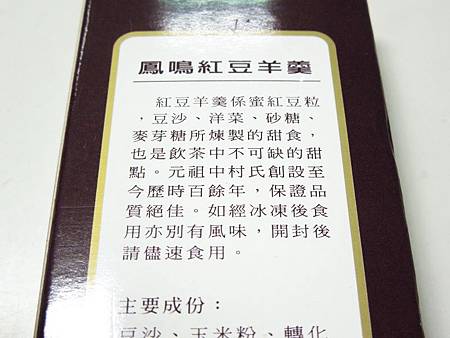 鳳鳴紅豆羊羹
紅豆羊羹係蜜紅豆粒
，豆沙、洋菜、砂糖、
麥芽糖所煉製的甜食，
也是飲茶中不可缺的甜
點。元祖中村氏創設至
今歷時百餘年，保證品
質絕佳。如經冰凍後食
用亦別有風味，開封後
請儘速食用。
主要成份：
豆沙、玉米粉、轉化